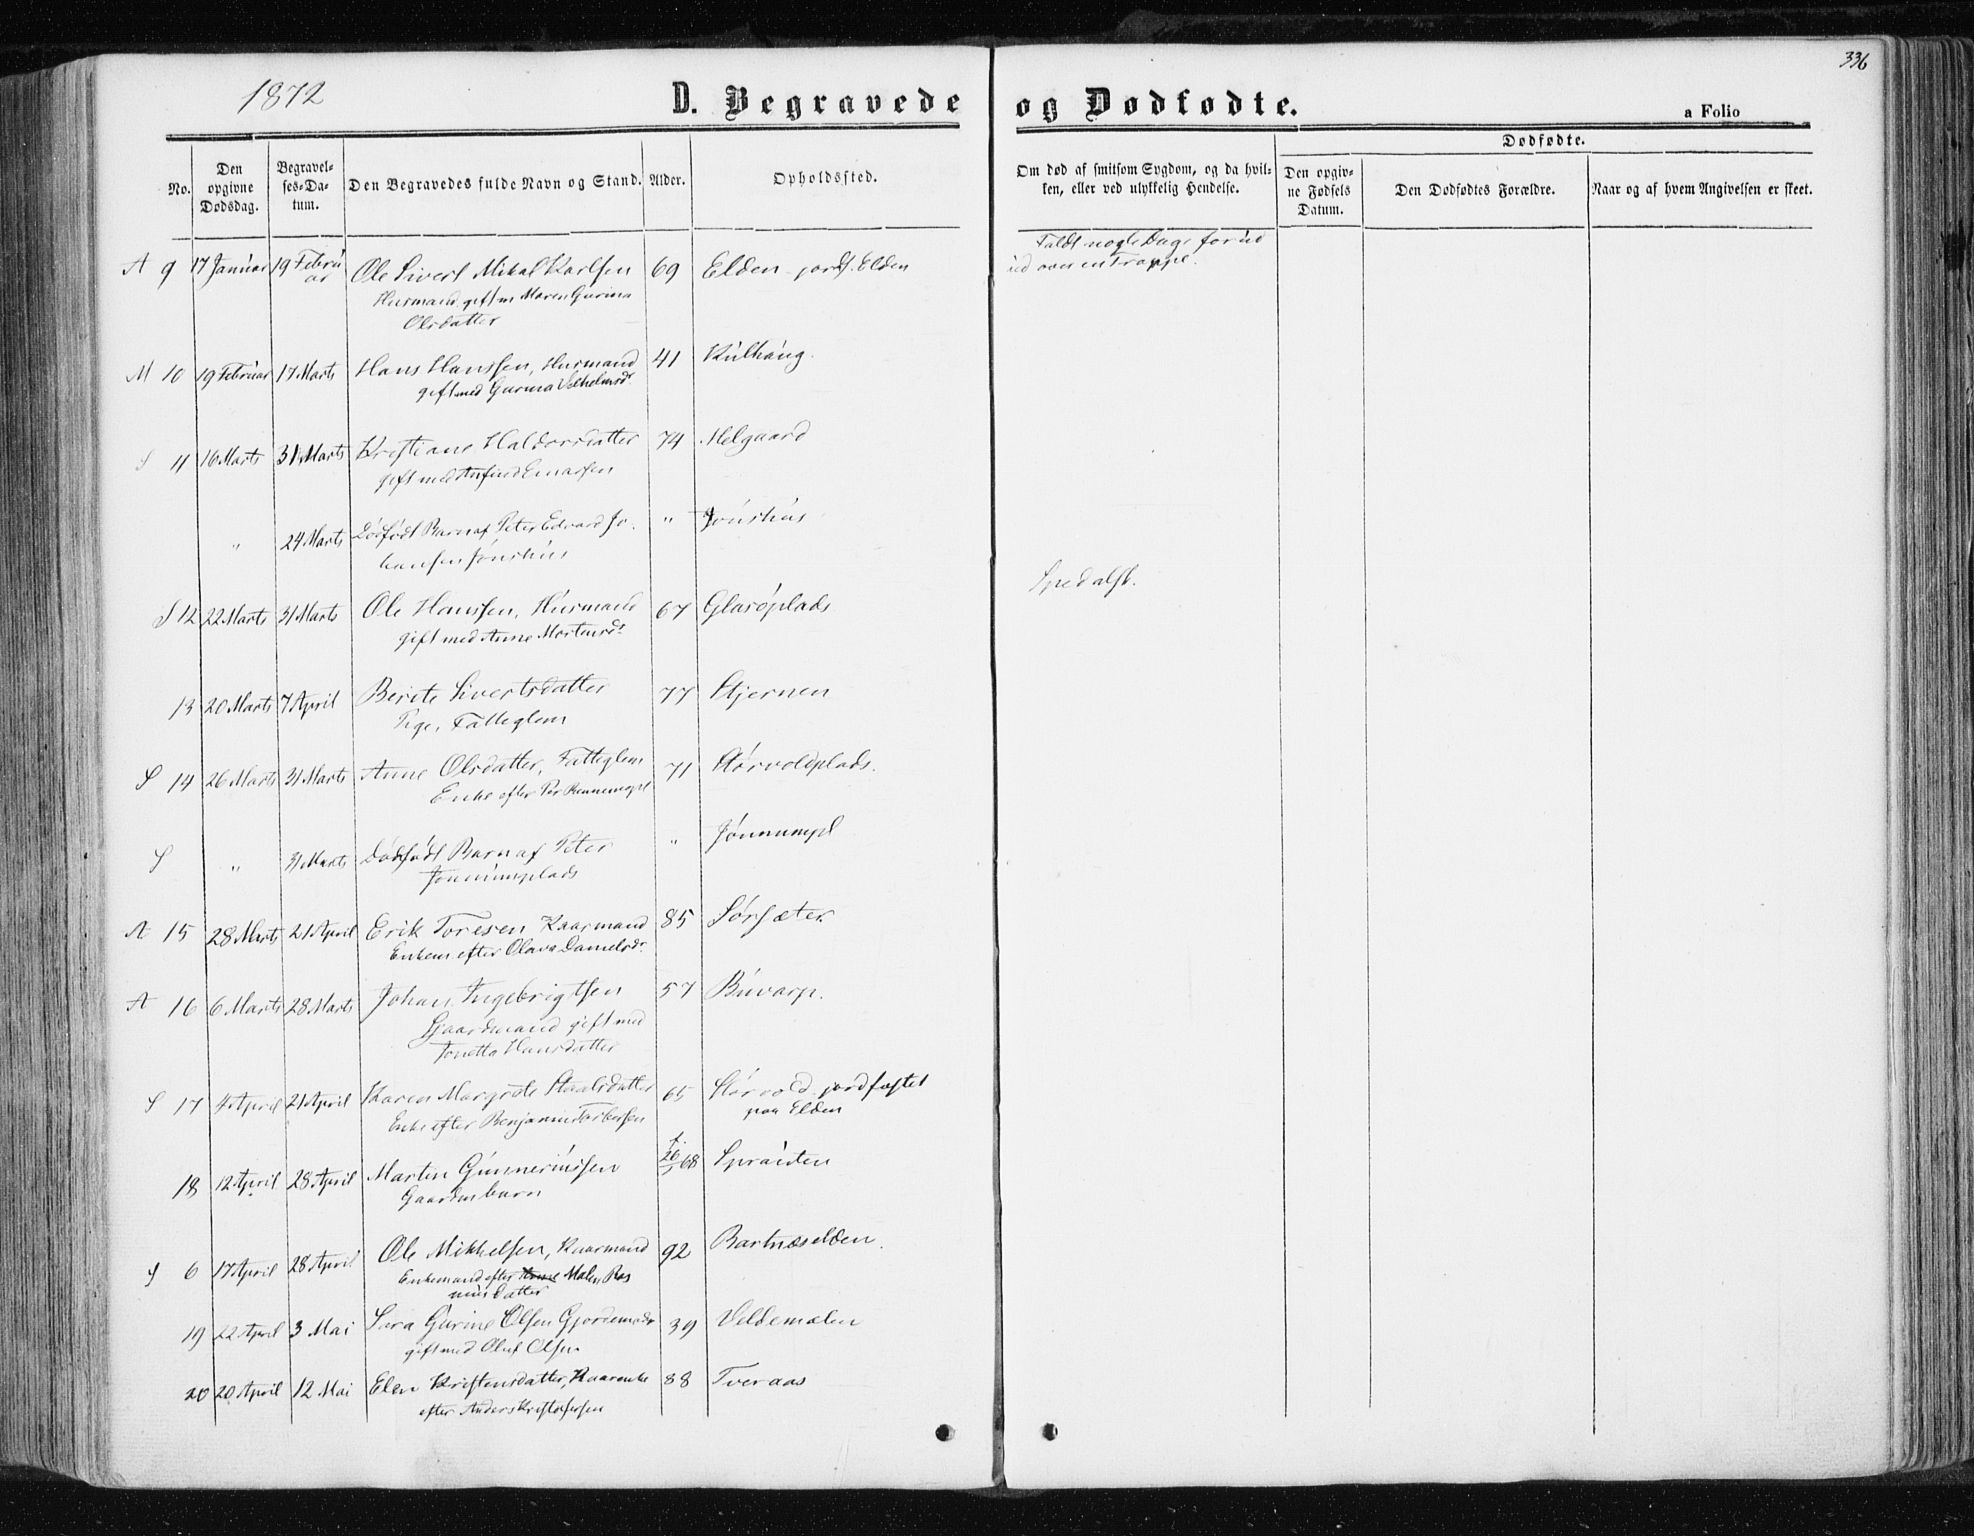 336
1872
D. Begravede og Dødfødte.
a Folio
No.
Den opgivne Dødsdag.
Begravelses-Datum.
Den Begravedes fulde Navn og Stand.
Alder.
Opholdssted.
Om død af smitsom Sygdom, og da hvilken, eller ved ulykkelig Hendelse.
Dødfødte.
Den opgivne Fødsels Datum.
Den Dødfødtes Forældre.
Naar og af hvem Angivelsen er skeet.
A 9 17 Januar 19 Februar Ole Sivert Mikal Karlsen 69 Elden jordf. Elden Faldt nogle Dage forud
ud over en Trappe.
Husmand gift m Maren Gurina
Olsdatter
M 10 19 Februar 17 Marts Hans Hanssen, Husmand 41 Kulhaug.
gift med Gurina
S 11 16 Marts 31 Marts Kristiane Haldorsdatter 74 Melgaard
gift med Einarsen
" 24 Marts Dødfødt Barn af Peter Edvard Jo- " Jønshus
hansen Jønshus
S 12 22 Marts 31 Marts Ole Hanssen, Husmand 67 Glasøplads Spedalsk.
gift med Anne Mortensdr
13 20 Marts 7 April Berete Sivertsdatter 77 Stjernen
Pige, Fatteglem
S 14 26 Marts 31 Marts Anne Olsdatter, Fatteglem 71 Størvoldplads.
Enke efter Per
S " 31 Marts Dødfødt Barn af Peter " Jønnumpl
Jønnumplads
A 15 28 Marts 21 April Erik Toresen Kaarmand 85 Sørsæter
Enkem. efter Olava Danielsdr
A 16 6 Marts 28 Marts Johan Ingebrigtsen 57 Buvarp.
Gaardmand gift med
Tonetta Hansdatter
S 17 4 April 21 April Karen Margrete Staalsdatter 65 Størvold jordfæstet
paa Elden
Enke efter Benjamin Torbersen
18 12 April 28 April Martin Gunneriussen 26 68 Sprauten
Gaardm barn
S 6 17 April 28 April Ole Mikkelsen, Kaarmand 92 Bartnæselden.
Enkemand efter Anne Malen Ras
musdatter
19 22 April 3 Mai Sara Gurine Olsen Gjordemodr 39 Veldemelen
gift med Oluf Olsen
20 20 April 12 Mai Elen Kristensdatter, Kaarenke 88 Tveraas
efter Anders Kristofersen